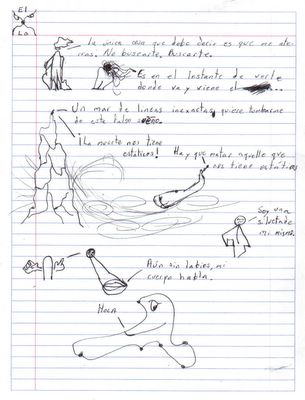 El
Lo
La única cosa que debo decir es que me ate-
rras. No buscarte. Buscarte.
Es en el instante de verte
donde va y viene el
Un mar de lineas inexactas quiere tumbarme
de este falso
¡La muerte nos tiene
estáticos!
Hay que matar aquello que
nos tiene estáticos
Soy una
mi mismo.
Aún sin labios, mi
cuerpo habla.
HOLA